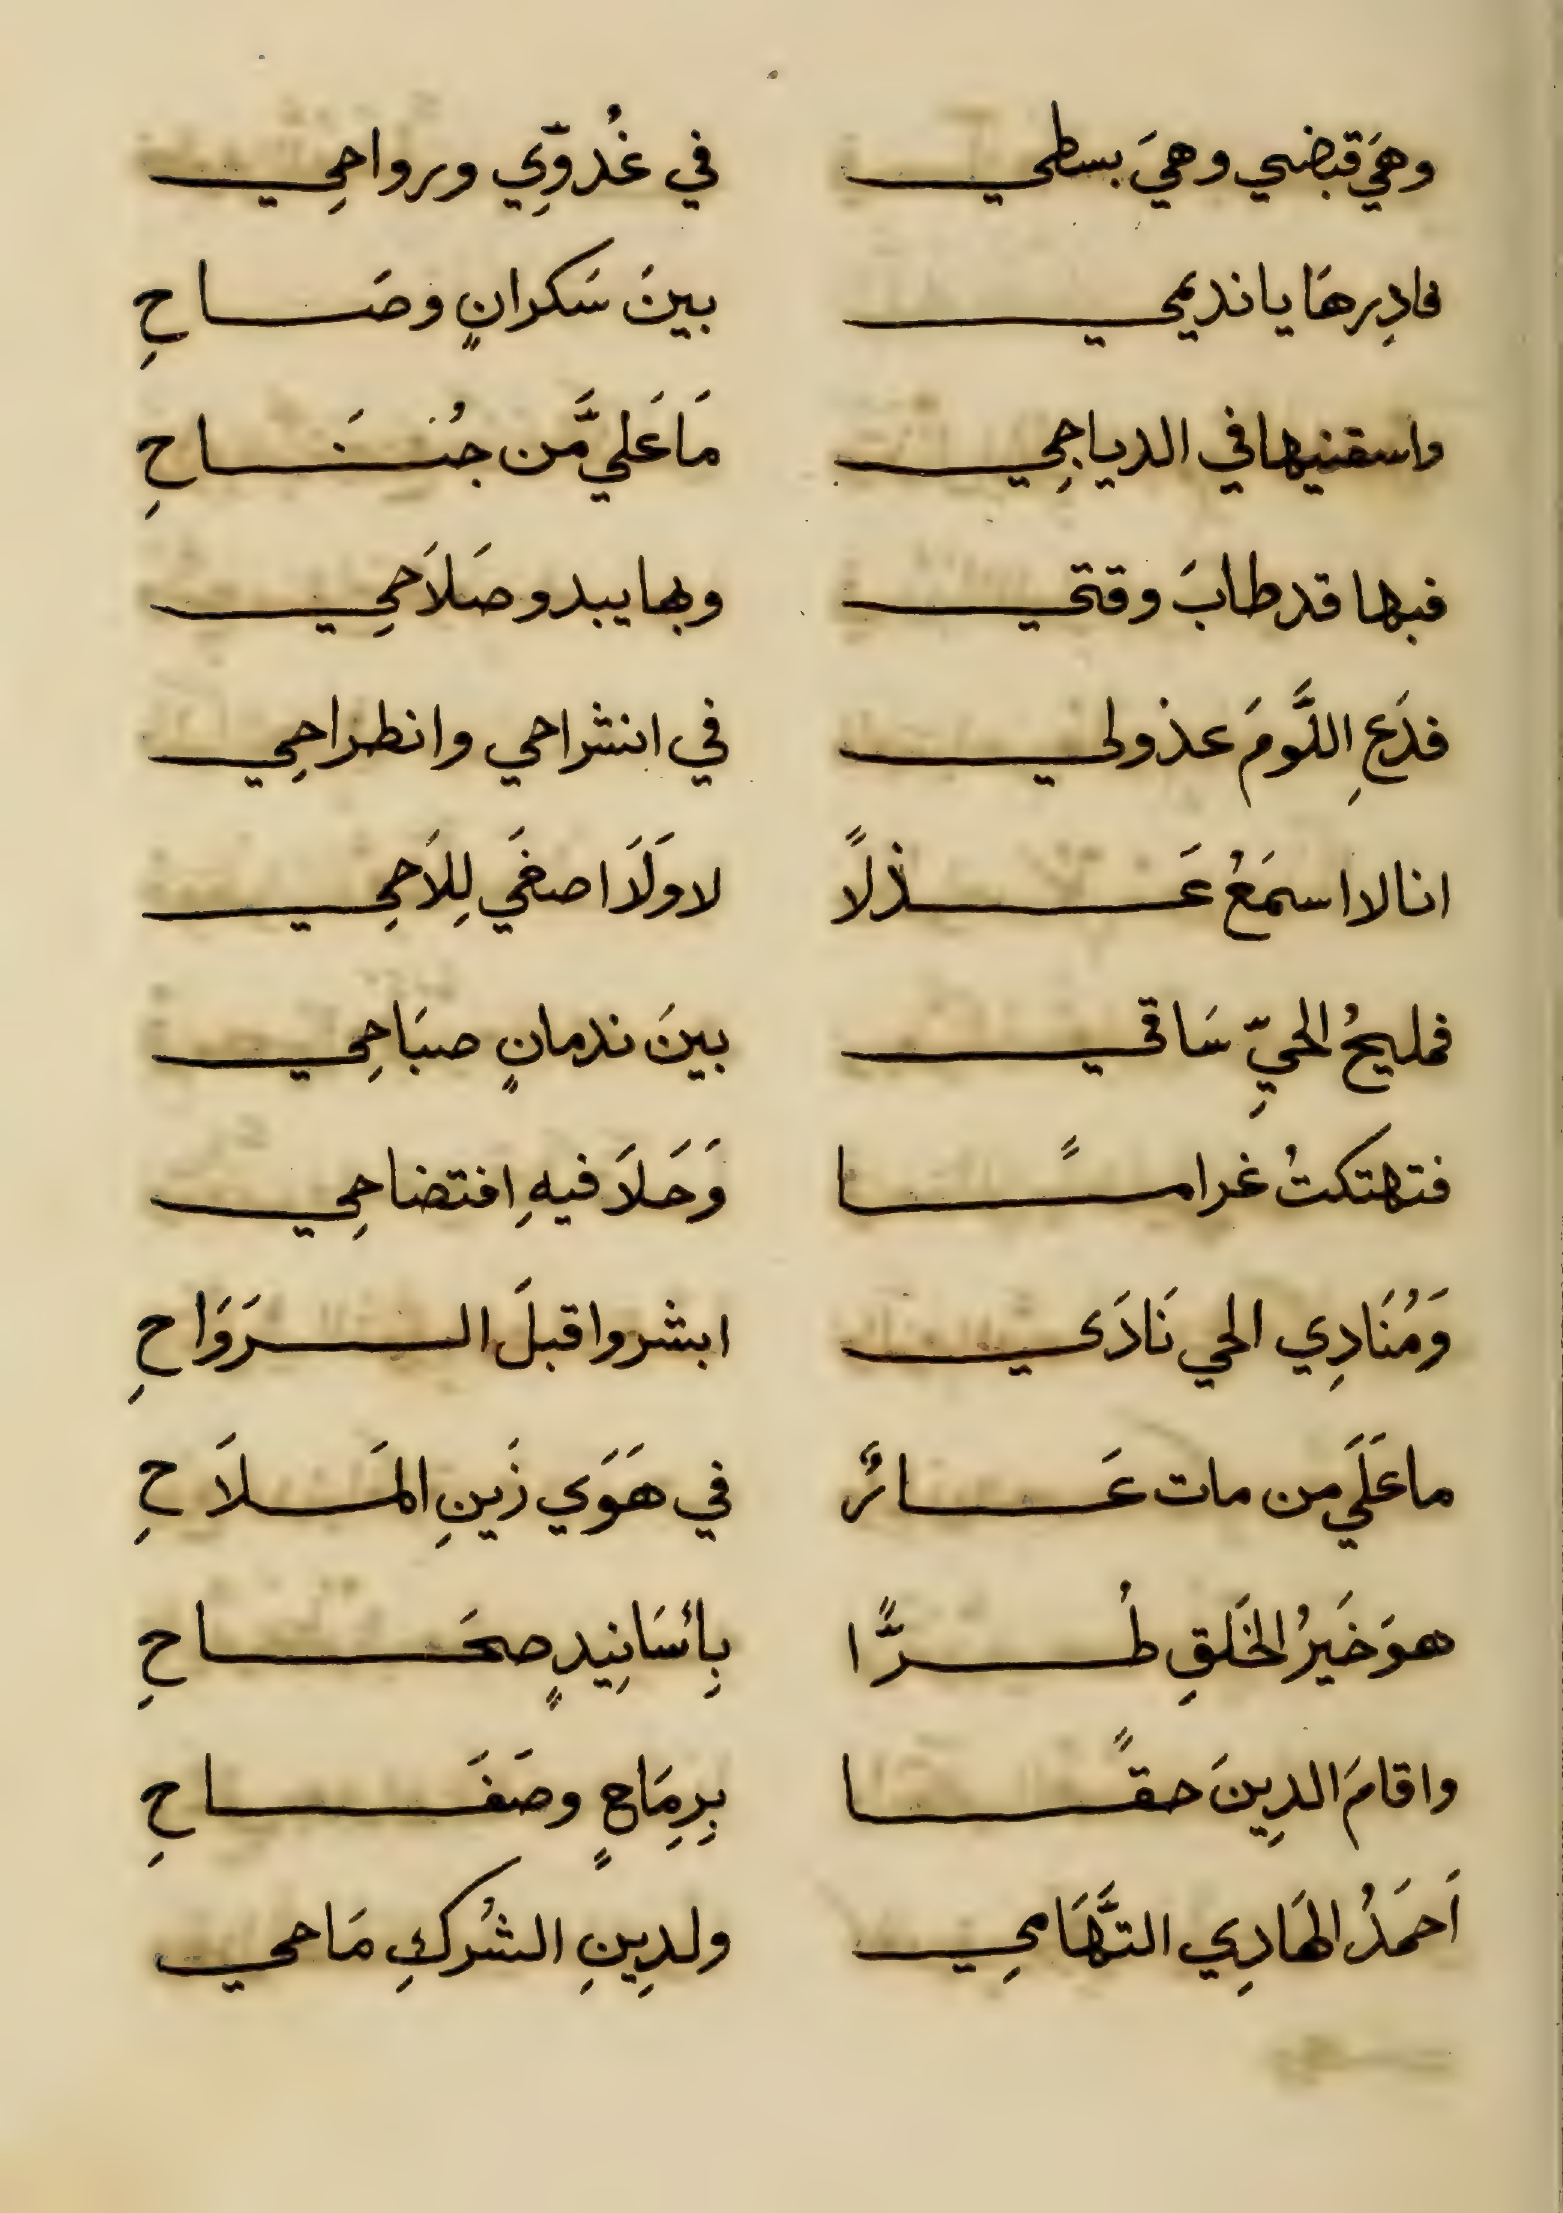 وهيَ قبضي وهيَ بسطي في غُدوِّي ورواحِي
فادِرهَا يا نديمي بينَ سَكرانٍ وصَاحِ
واسقنيها في الدياجِي مَا عَليَّ من جُنَاحِ
فبها قد طابَ وقتي وبها يبدو صَلاَحِي
فدَعِ اللَّومَ عذولي في انشراحي وانطراحِي
انا لا اسمَعُ عَذلًا لا وَلَا اصغَي لِلاَحِي
فمليحُ الحيِّ سَاقي بينَ ندمانٍ صبَاحِي
فتهتكتُ غرامًا وَحَلاَ فيهِ افتضاحِي
وَمُنَادِي الحي نَادَي ابشروا قبلَ الرَوَاحِ
ما عَلَي من مات عَارٌ في هَوَي زَينِ المَلاَحِ
هوَ خَيرُ الخَلقِ طُرًّا بِأسَانِيدٍ صحَاحِ
واقامَ الدِينَ حقًا بِرِمَاحٍ وصَفَاحِ
اَحمَدُ الهَادِي التَّهَامِي ولدِينِ الشُركِ مَاحي